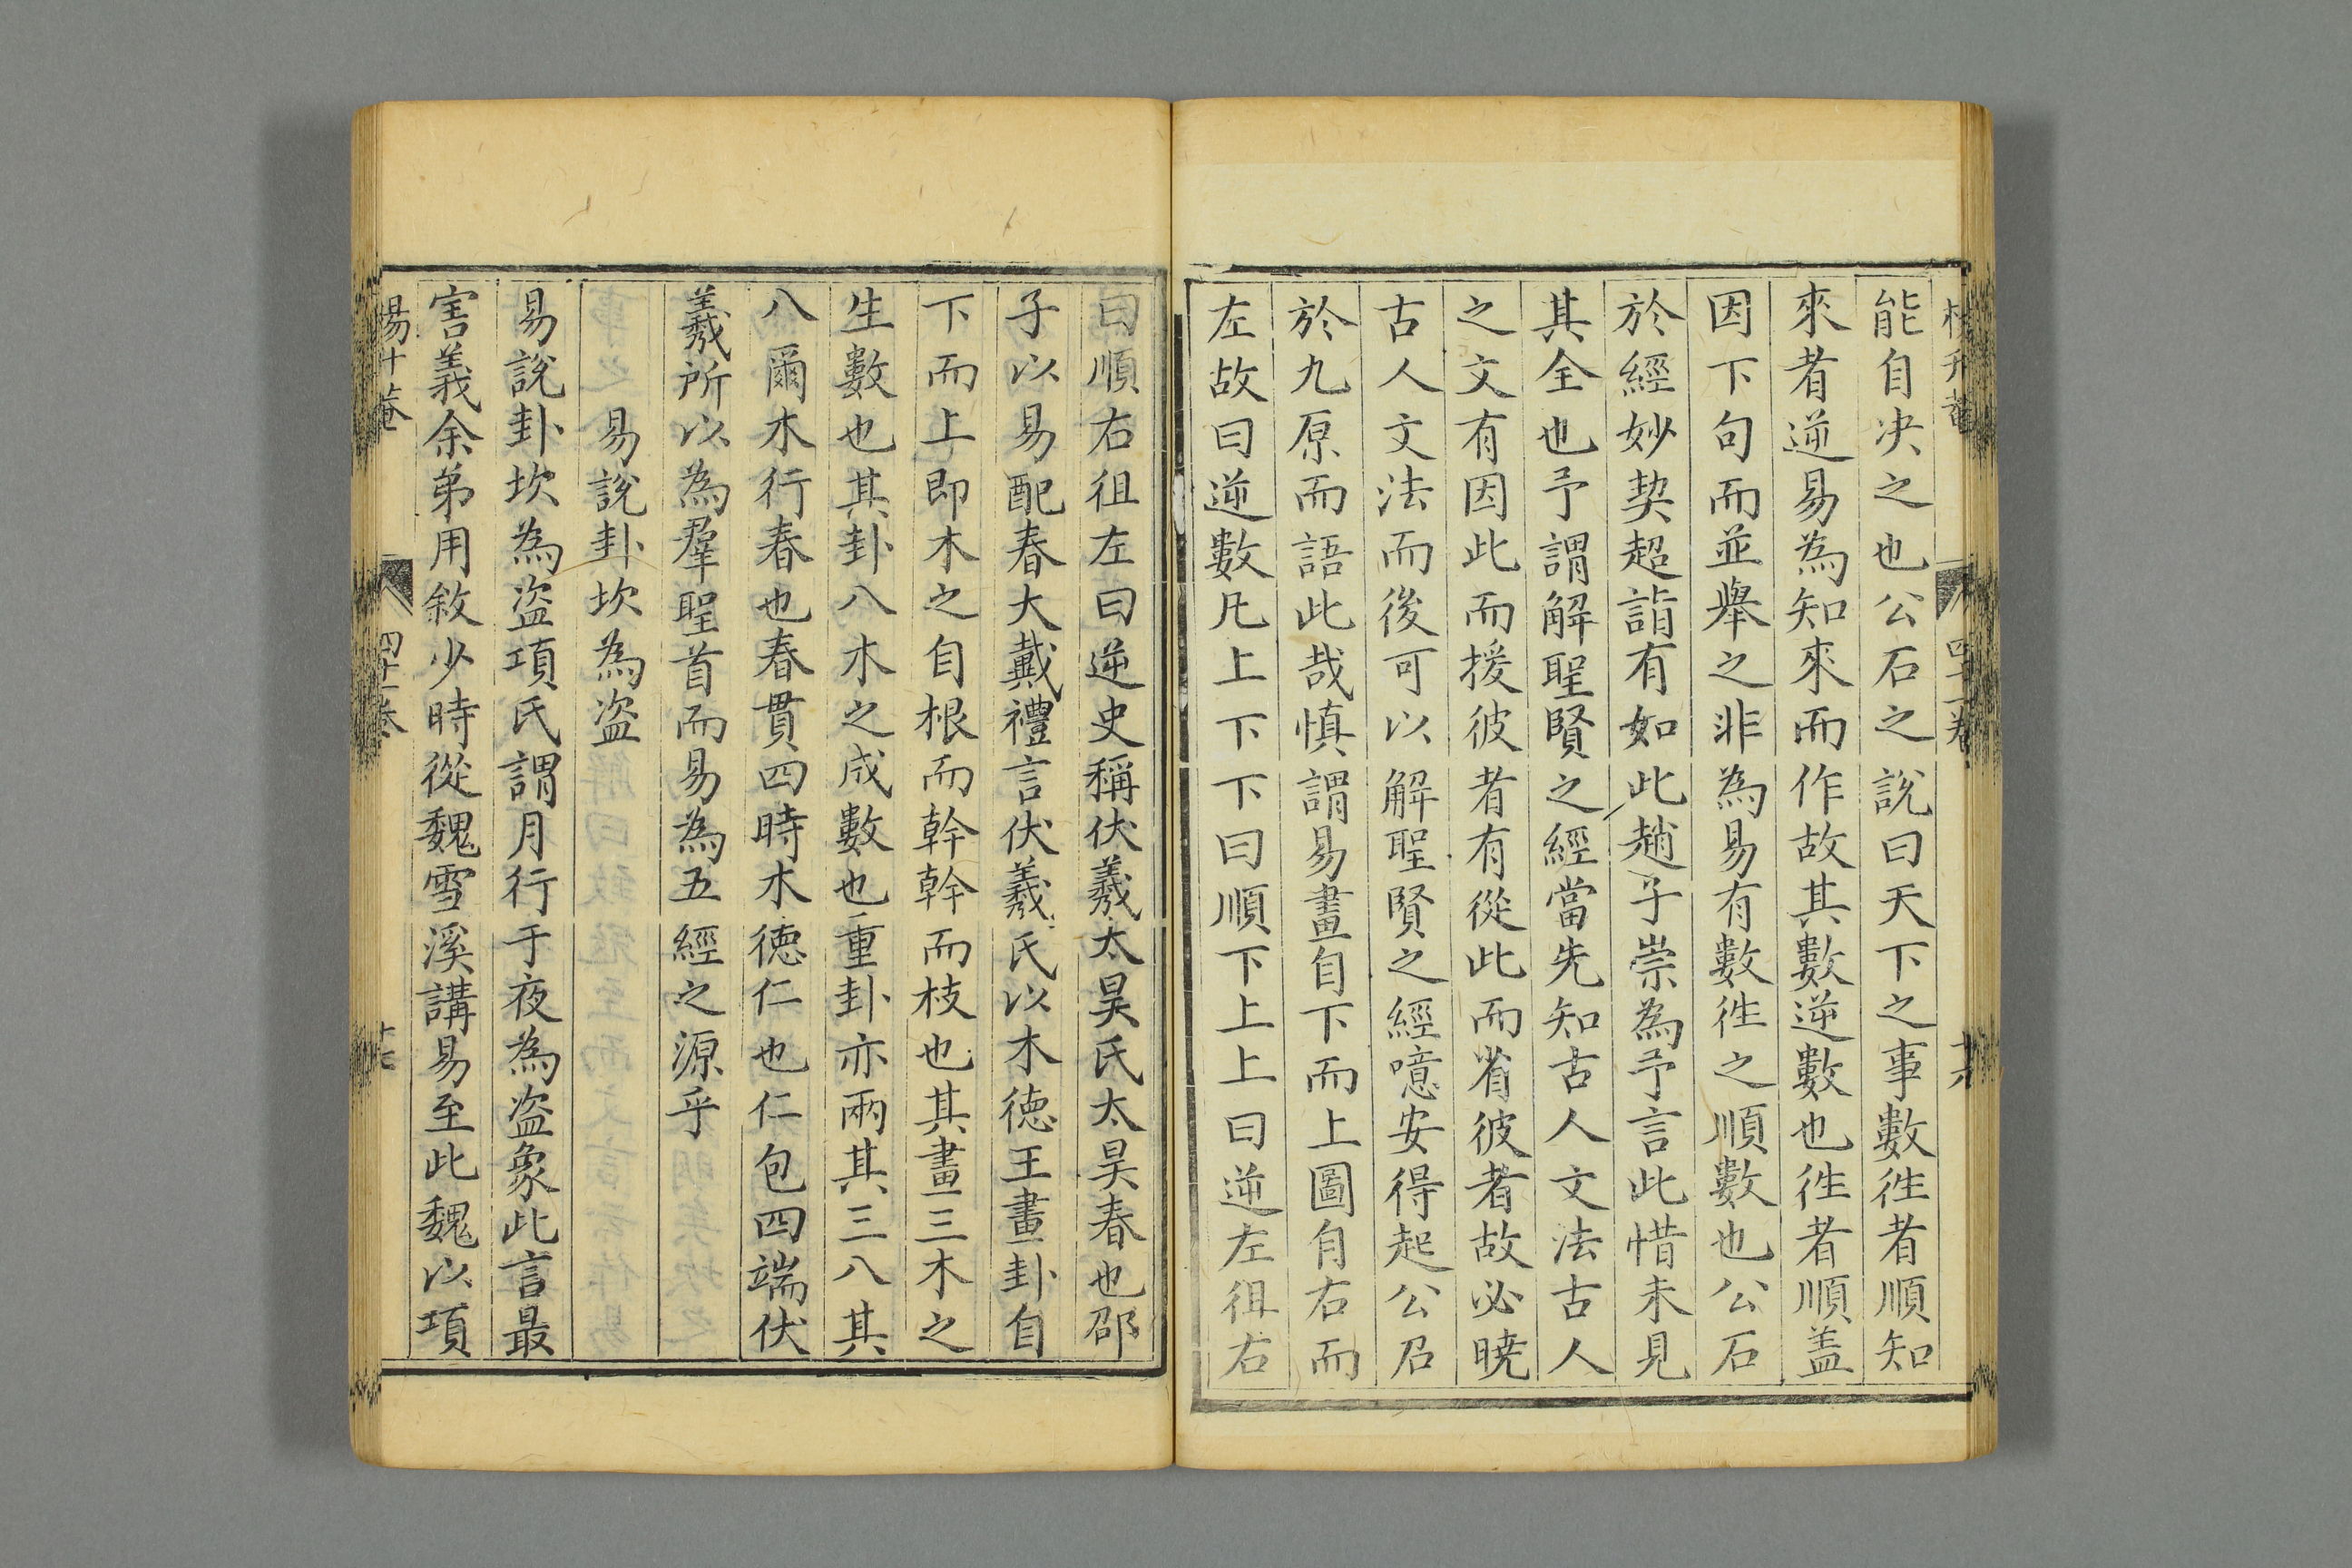 能自决之也公石之說曰天下之事數徃者順知
來者逆易為知來而作故其數逆數也徃者順盖
因下句而並舉之非為易有數徃之順數也公石
於經妙契超詣有如此趙子崇為予言此惜未見
其全也予謂解聖賢之經當先知古人文法古人
之文有因此而援彼者有從此而省彼者故必曉
古人文法而後可以解聖賢之經噫安得起公石
於九原而語此哉慎謂易畫自下而上圖自右而
左故曰逆數凡上下下曰順下上上曰逆左徂右
曰順右徂左曰逆史稱伏羲太昊氏太昊春也邵
子以易配春大戴禮言伏羲氏以木德王畫卦自
下而上即木之自根而幹幹而枝也其畫三木之
生數也其卦八木之成數也重卦亦兩其三八其
八爾木行春也春貫四時木德仁也仁包四端伏
羲所以為羣聖首而易為五經之源乎
易說卦坎為盜
易說卦坎為盜項氏謂月行于夜為盜象此言最
害義余弟用敘少時從魏雪溪講易至此魏以項
四十一卷